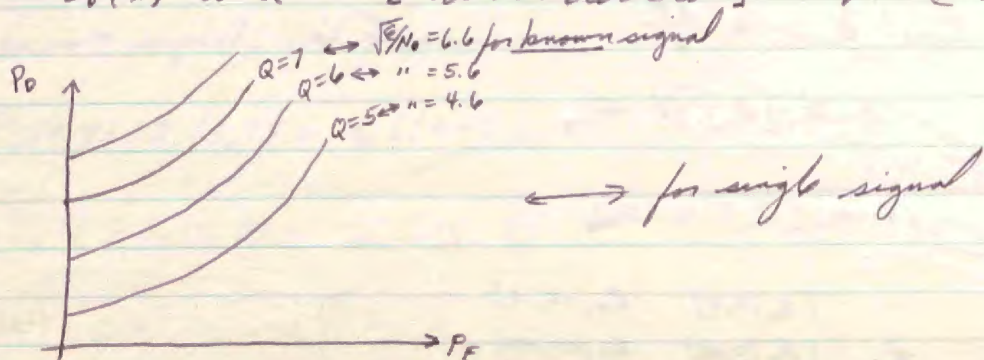 Q=7 ↔ √ε/N₀ = 6.6 for known signal
P_D
Q=6 ↔ " = 5.6
Q=5 ↔ " = 4.6
↔ for single signal
P_F